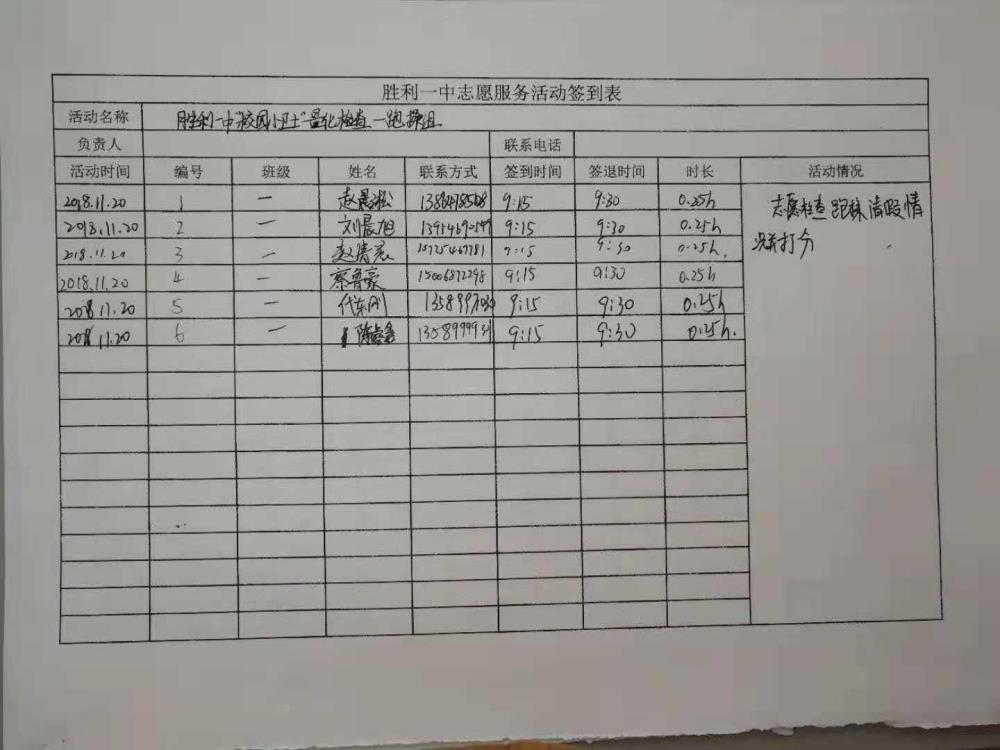 胜利一中志愿服务活动签到表
活动名称 胜利一中"校园小卫士"量化检查—跑操组
负责人 联系电话
活动时间 编号 班级 姓名 联系方式 签到时间 签退时间 时长 活动情况
2018.11.20 1 一 赵晨松 9:15 9:30 0.25h 志愿检查跑操请假情
2018.11.20 2 刘晨旭 9:15 9:30 0.25h 况并打分
2018.11.20 3 一 9:15 9:30 0.25h
2018.11.20 4 一 蔡鲁豪 15006872298 9:15 9:30 0.25h
2018.11.20 5 一 代东刚 9:15 9:30 0.25h
2018.11.20 6 一 9:15 9:30 0.25h.